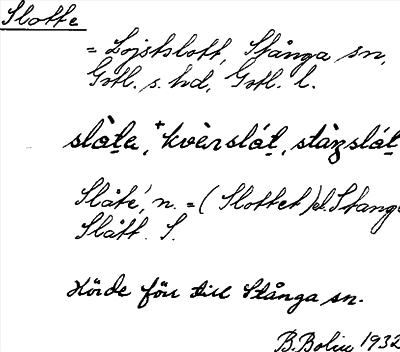 Slotte
= Lojstslott, Stånga sn,
Gotl. s. hd, Gotl. l.
slàte, +kvèrslát, stàŋslát
Slåté, n. = (Slottet) Stang
Slått. S.
Hörde förr till Stånga sn.
B. Bolin 1932